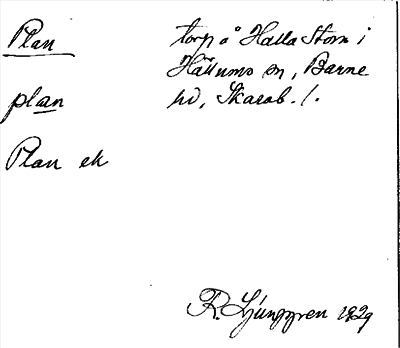 Plan
torp å Halla Stom i
Hällums sn, Barne
hd, Skarab. l.
plan
Plan ek
R. Ljunggren 1929